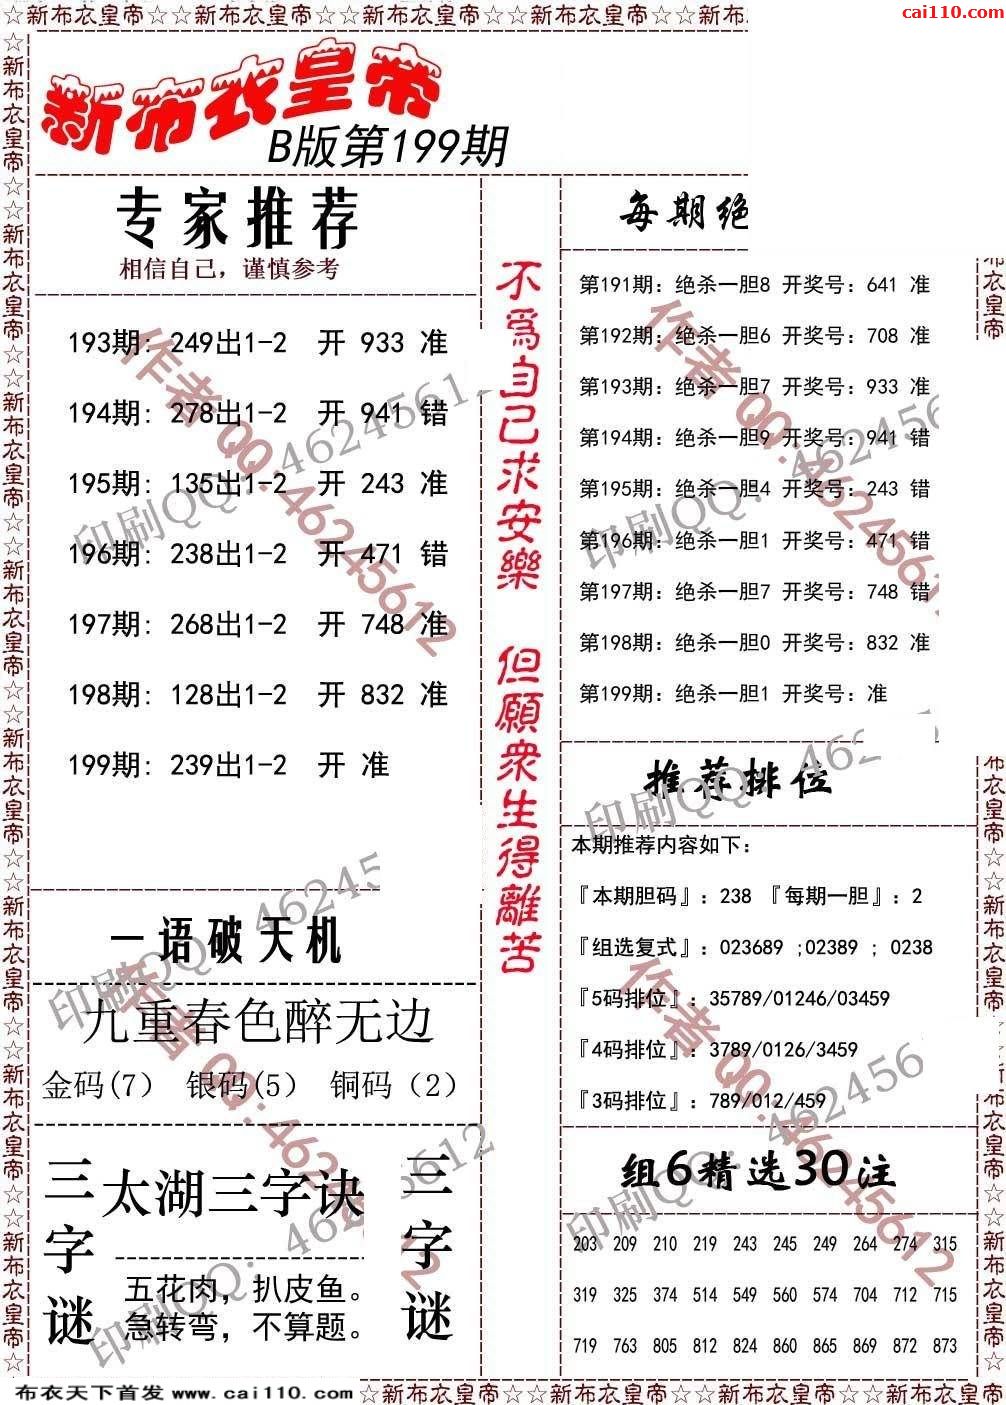 ☆新布衣皇帝☆☆新布衣皇帝☆☆新布衣皇帝☆☆新布衣皇帝☆☆新布
cai110.com
新布衣皇帝
B版第199期
专家推荐
相信自己，谨慎参考
193期: 249出1-2 开 933 准
194期: 278出1-2 开 941 错
195期: 135出1-2 开 243 准
196期: 238出1-2 开 471 错
197期: 268出1-2 开 748 准
198期: 128出1-2 开 832 准
199期: 239出1-2 开 准
一语破天机
九重春色醉无边
金码(7) 银码(5) 铜码(2)
三字谜
太湖三字诀
五花肉，扒皮鱼。
急转弯，不算题。
三字谜
不為自己求安樂 但願衆生得離苦
每期绝
第191期: 绝杀一胆8 开奖号: 641 准
第192期: 绝杀一胆6 开奖号: 708 准
第193期: 绝杀一胆7 开奖号: 933 准
第194期: 绝杀一胆9 开奖号: 941 错
第195期: 绝杀一胆4 开奖号: 243 错
第196期: 绝杀一胆1 开奖号: 471 错
第197期: 绝杀一胆7 开奖号: 748 错
第198期: 绝杀一胆0 开奖号: 832 准
第199期: 绝杀一胆1 开奖号: 准
推荐排位
本期推荐内容如下:
『本期胆码』: 238 『每期一胆』: 2
『组选复式』: 023689 ;02389 ; 0238
『5码排位』: 35789/01246/03459
『4码排位』: 3789/0126/3459
『3码排位』: 789/012/459
组6精选30注
203 209 210 219 243 245 249 264 274 315
319 325 374 514 549 560 574 704 712 715
719 763 805 812 824 860 865 869 872 873
作者QQ:46245612
印刷QQ:46245612
布衣天下首发 www.cai110.com
☆新布衣皇帝☆☆新布衣皇帝☆☆新布衣皇帝☆☆新布衣皇帝☆